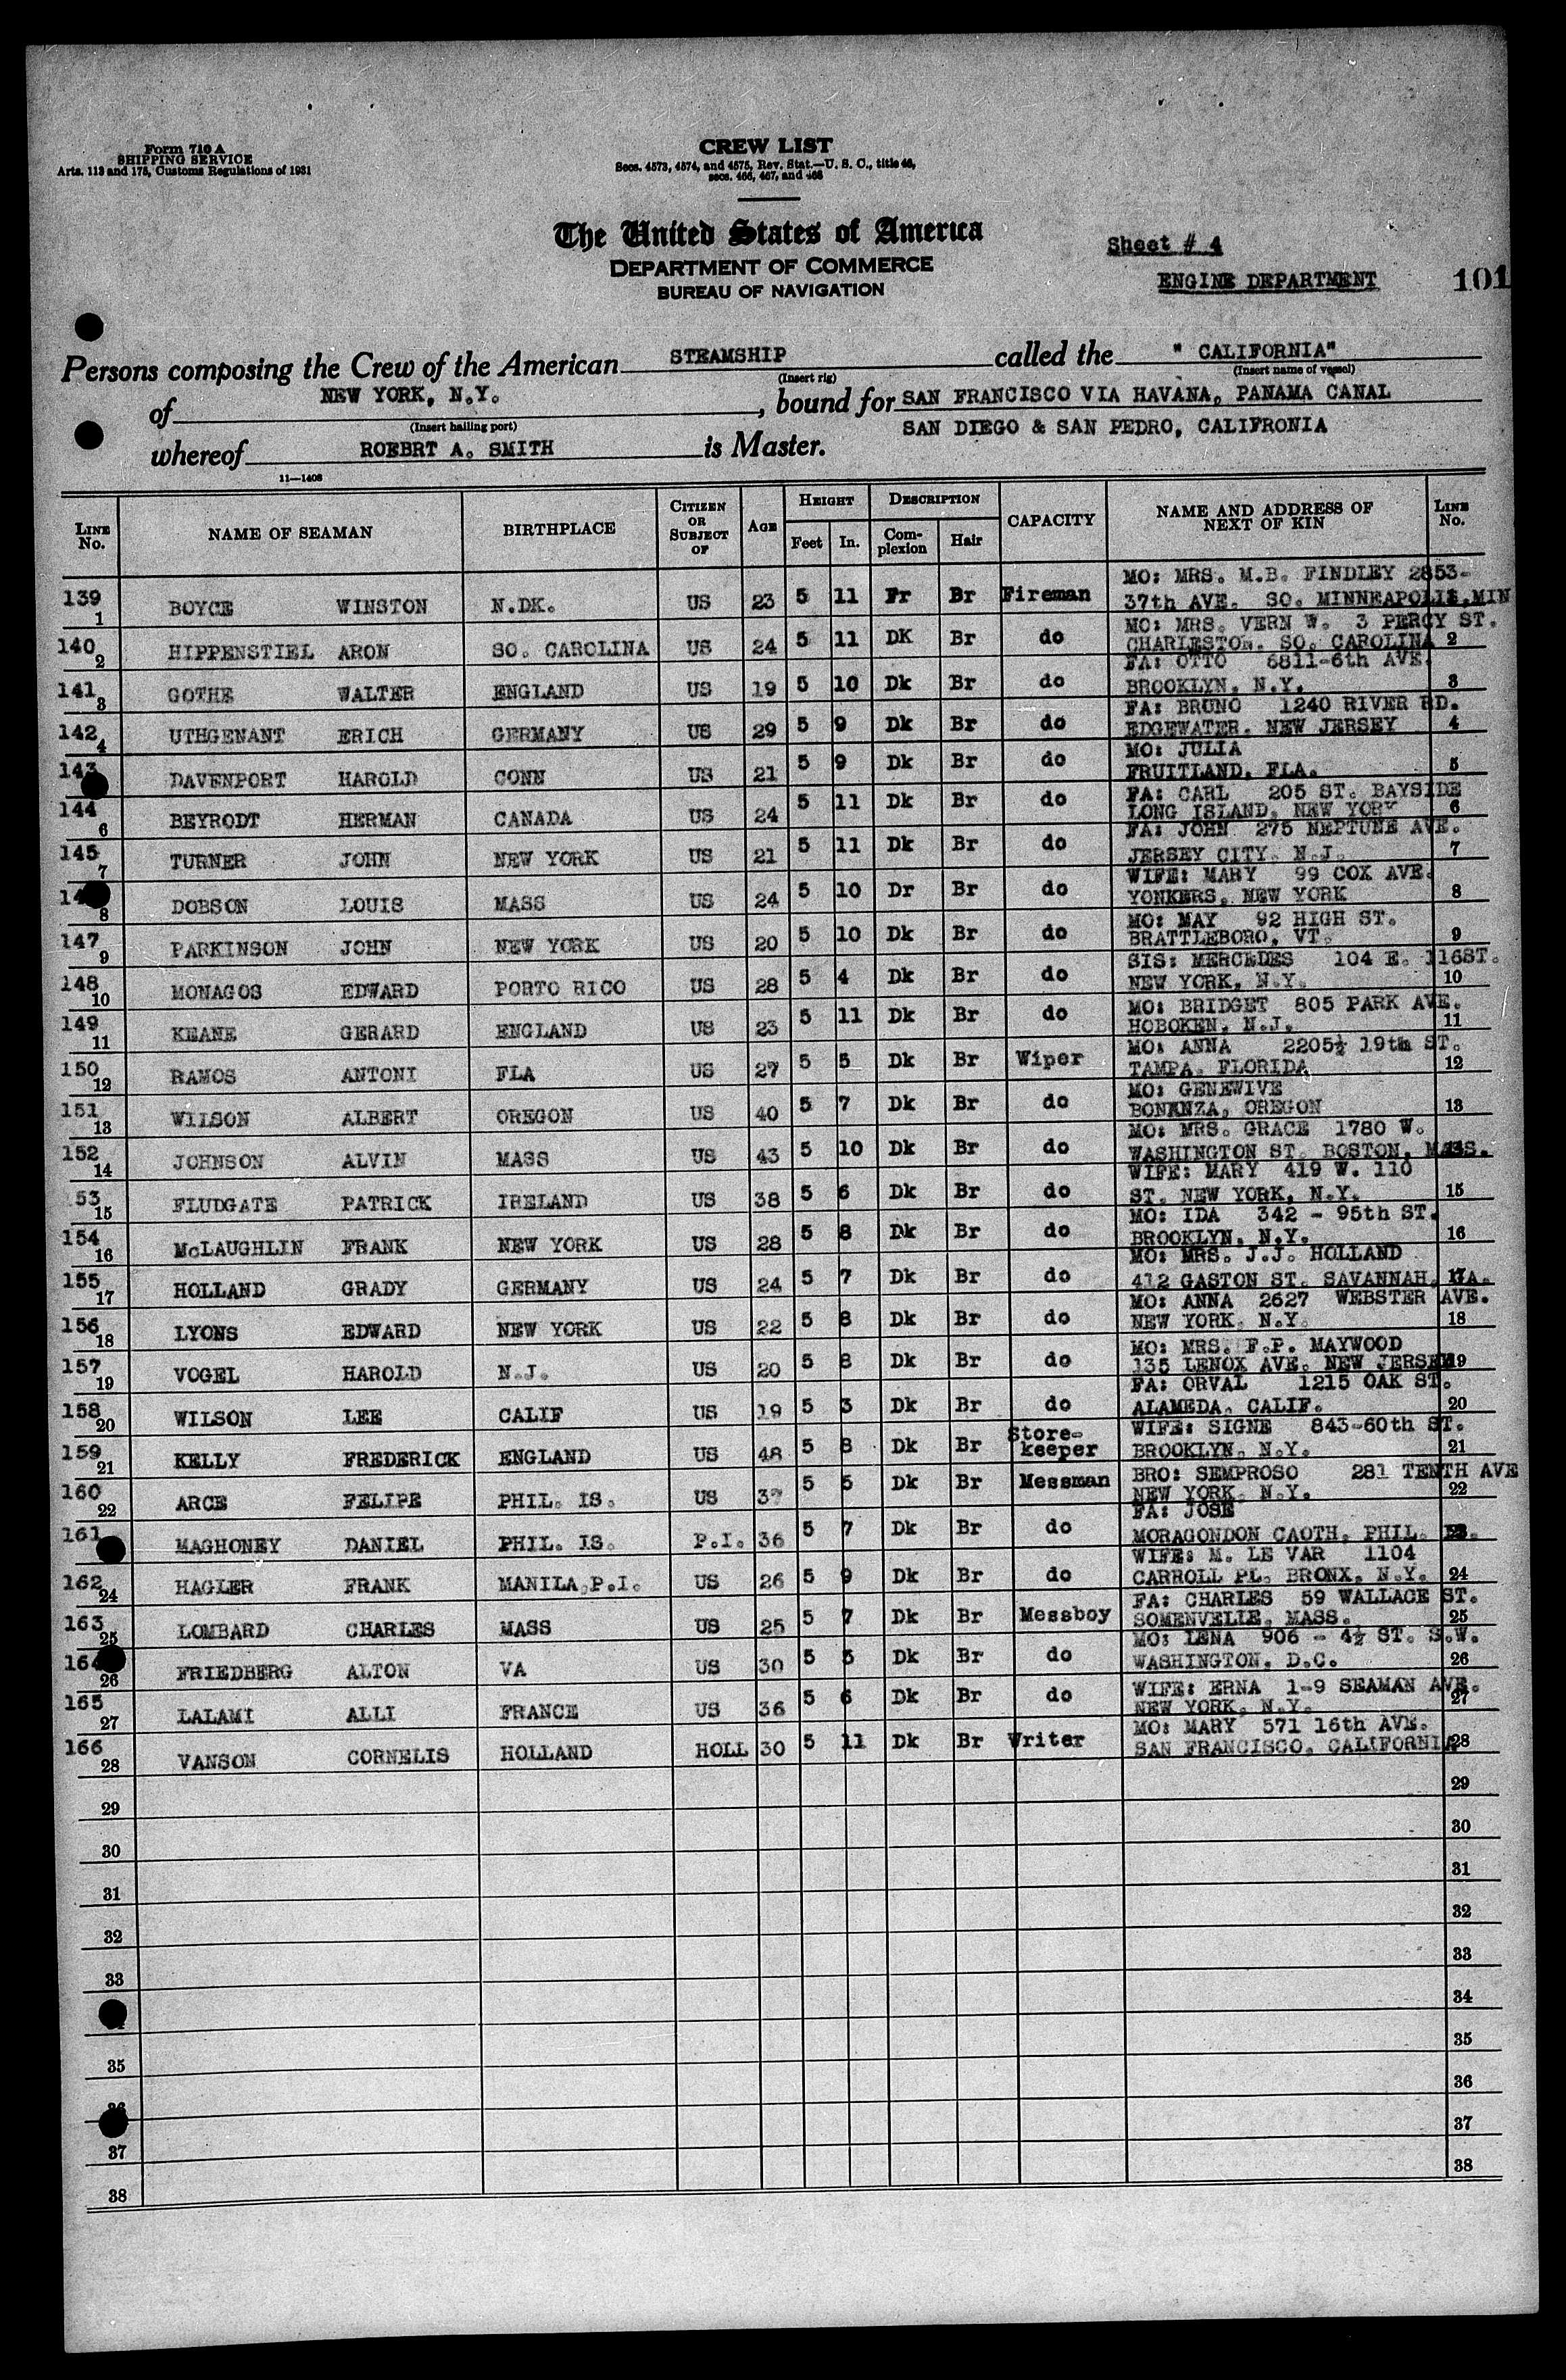 Form 710 A
SHIPPING SERVICE
Arts. 113 and 175, Customs Regulations of 1931
CREW LIST
Secs. 4573, 4574, and 4575, Rev. Stat.—U. S. C., title 46,
secs. 466, 467, and 468
The United States of America
DEPARTMENT OF COMMERCE
BUREAU OF NAVIGATION
Sheet # 4
ENGINE DEPARTMENT
101
Persons composing the Crew of the American STEAMSHIP called the " CALIFORNIA"
(Insert rig) (Insert name of vessel)
of NEW YORK, N.Y. , bound for SAN FRANCISCO VIA HAVANA, PANAMA CANAL
(Insert hailing port)
SAN DIEGO & SAN PEDRO, CALIFRONIA
whereof ROEBRT A. SMITH is Master.
11—1408
LINE No. NAME OF SEAMAN BIRTHPLACE CITIZEN OR SUBJECT OF AGE HEIGHT Feet In. DESCRIPTION Complexion Hair CAPACITY NAME AND ADDRESS OF NEXT OF KIN LINE No.
139 1 BOYCE WINSTON N.DK. US 23 5 11 Fr Br Fireman MO: MRS. M.B. FINDLEY 2853-
37th AVE. SO. MINNEAPOLIS,MIN
140 2 HIPPENSTIEL ARON SO. CAROLINA US 24 5 11 DK Br do MO: MRS. VERN W. 3 PERCY ST.
CHARLESTON. SO. CAROLINA 2
141 3 GOTHE WALTER ENGLAND US 19 5 10 Dk Br do FA: OTTO 6811-6th AVE.
BROOKLYN, N.Y. 3
142 4 UTHGENANT ERICH GERMANY US 29 5 9 Dk Br do FA: BRUNO 1240 RIVER RD.
EDGEWATER. NEW JERSEY 4
143 DAVENPORT HAROLD CONN US 21 5 9 Dk Br do MO: JULIA
FRUITLAND, FLA. 5
144 6 BEYRODT HERMAN CANADA US 24 5 11 Dk Br do FA: CARL 205 ST. BAYSIDE
LONG ISLAND, NEW YORK 6
145 7 TURNER JOHN NEW YORK US 21 5 11 Dk Br do FA: JOHN 275 NEPTUNE AVE.
JERSEY CITY. N.J. 7
8 DOBSON LOUIS MASS US 24 5 10 Dr Br do WIFE: MARY 99 COX AVE.
YONKERS, NEW YORK 8
147 9 PARKINSON JOHN NEW YORK US 20 5 10 Dk Br do MO: MAY 92 HIGH ST.
BRATTLEBORO, VT. 9
148 10 MONAGOS EDWARD PORTO RICO US 28 5 4 Dk Br do SIS: MERCEDES 104 E. 116ST.
NEW YORK, N.Y. 10
149 11 KEANE GERARD ENGLAND US 23 5 11 Dk Br do MO: BRIDGET 805 PARK AVE.
HOBOKEN, N.J. 11
150 12 RAMOS ANTONI FLA US 27 5 5 Dk Br Wiper MO: ANNA 2205½ 19th ST.
TAMPA. FLORIDA 12
151 13 WILSON ALBERT OREGON US 40 5 7 Dk Br do MO: GENEWIVE
BONANZA, OREGON 13
152 14 JOHNSON ALVIN MASS US 43 5 10 Dk Br do MO: MRS. GRACE 1780 W.
WASHINGTON ST. BOSTON, MASS.
53 15 FLUDGATE PATRICK IRELAND US 38 5 6 Dk Br do WIFE: MARY 419 W. 110
ST. NEW YORK, N.Y. 15
154 16 McLAUGHLIN FRANK NEW YORK US 28 5 8 Dk Br do MO: IDA 342 - 95th ST.
BROOKLYN, N.Y. 16
155 17 HOLLAND GRADY GERMANY US 24 5 7 Dk Br do MO: MRS. J.J. HOLLAND
412 GASTON ST. SAVANNAH, GA. 17
156 18 LYONS EDWARD NEW YORK US 22 5 8 Dk Br do MO: ANNA 2627 WEBSTER AVE.
NEW YORK, N.Y. 18
157 19 VOGEL HAROLD N.J. US 20 5 8 Dk Br do MO: MRS. F.P. MAYWOOD
135 LENOX AVE. NEW JERSEY 19
158 20 WILSON LEE CALIF US 19 5 3 Dk Br do FA: ORVAL 1215 OAK ST.
ALAMEDA, CALIF. 20
159 21 KELLY FREDERICK ENGLAND US 48 5 8 Dk Br Store-keeper WIFE: SIGNE 843-60th ST.
BROOKLYN, N.Y. 21
160 22 ARCE FELIPE PHIL. IS. US 37 5 5 Dk Br Messman BRO: SEMPROSO 281 TENTH AVE
NEW YORK, N.Y. 22
161 MAGHONEY DANIEL PHIL. IS. P.I. 36 5 7 Dk Br do FA: JOSE
MORAGONDON CAOTH, PHIL. IS. 23
162 24 HAGLER FRANK MANILA,P.I. US 26 5 9 Dk Br do WIFE: M. LE VAR 1104
CARROLL PL. BRONX, N.Y. 24
163 25 LOMBARD CHARLES MASS US 25 5 7 Dk Br Messboy FA: CHARLES 59 WALLACE ST.
SOMENVELLE, MASS. 25
164 26 FRIEDBERG ALTON VA US 30 5 5 Dk Br do MO: LENA 906 - 4½ ST. S.W.
WASHINGTON, D.C. 26
165 27 LALAMI ALLI FRANCE US 36 5 6 Dk Br do WIFE: ERNA 1-9 SEAMAN AVE.
NEW YORK, N.Y. 27
166 28 VANSON CORNELIS HOLLAND HOLL 30 5 11 Dk Br Writer MO: MARY 571 16th AVE.
SAN FRANCISCO, CALIFORNIA 28
29 29
30 30
31 31
32 32
33 33
34
35 35
36 36
37 37
38 38